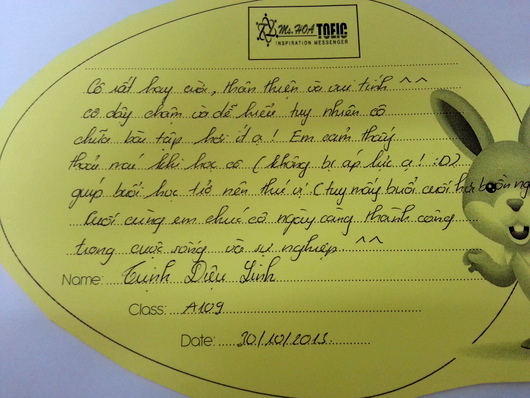 Ms. HOA TOEIC
INSPIRATION MESSENGER
Cô rất hay cười, thân thiện và vui tính ^^
cô dạy chậm và dễ hiểu tuy nhiên cô
chữa bài tập hơi ít ạ! Em cảm thấy
thoải mái khi học cô (không bị áp lực ạ! :D)
giúp buổi học trở nên thú vị! (tuy mấy buổi cuối hơi buồn ng
Cuối cùng em chúc cô ngày càng thành công
trong cuộc sống và sự nghiệp ^^
Name: Trịnh Diệu Linh
Class: A109
Date: 30/10/2015